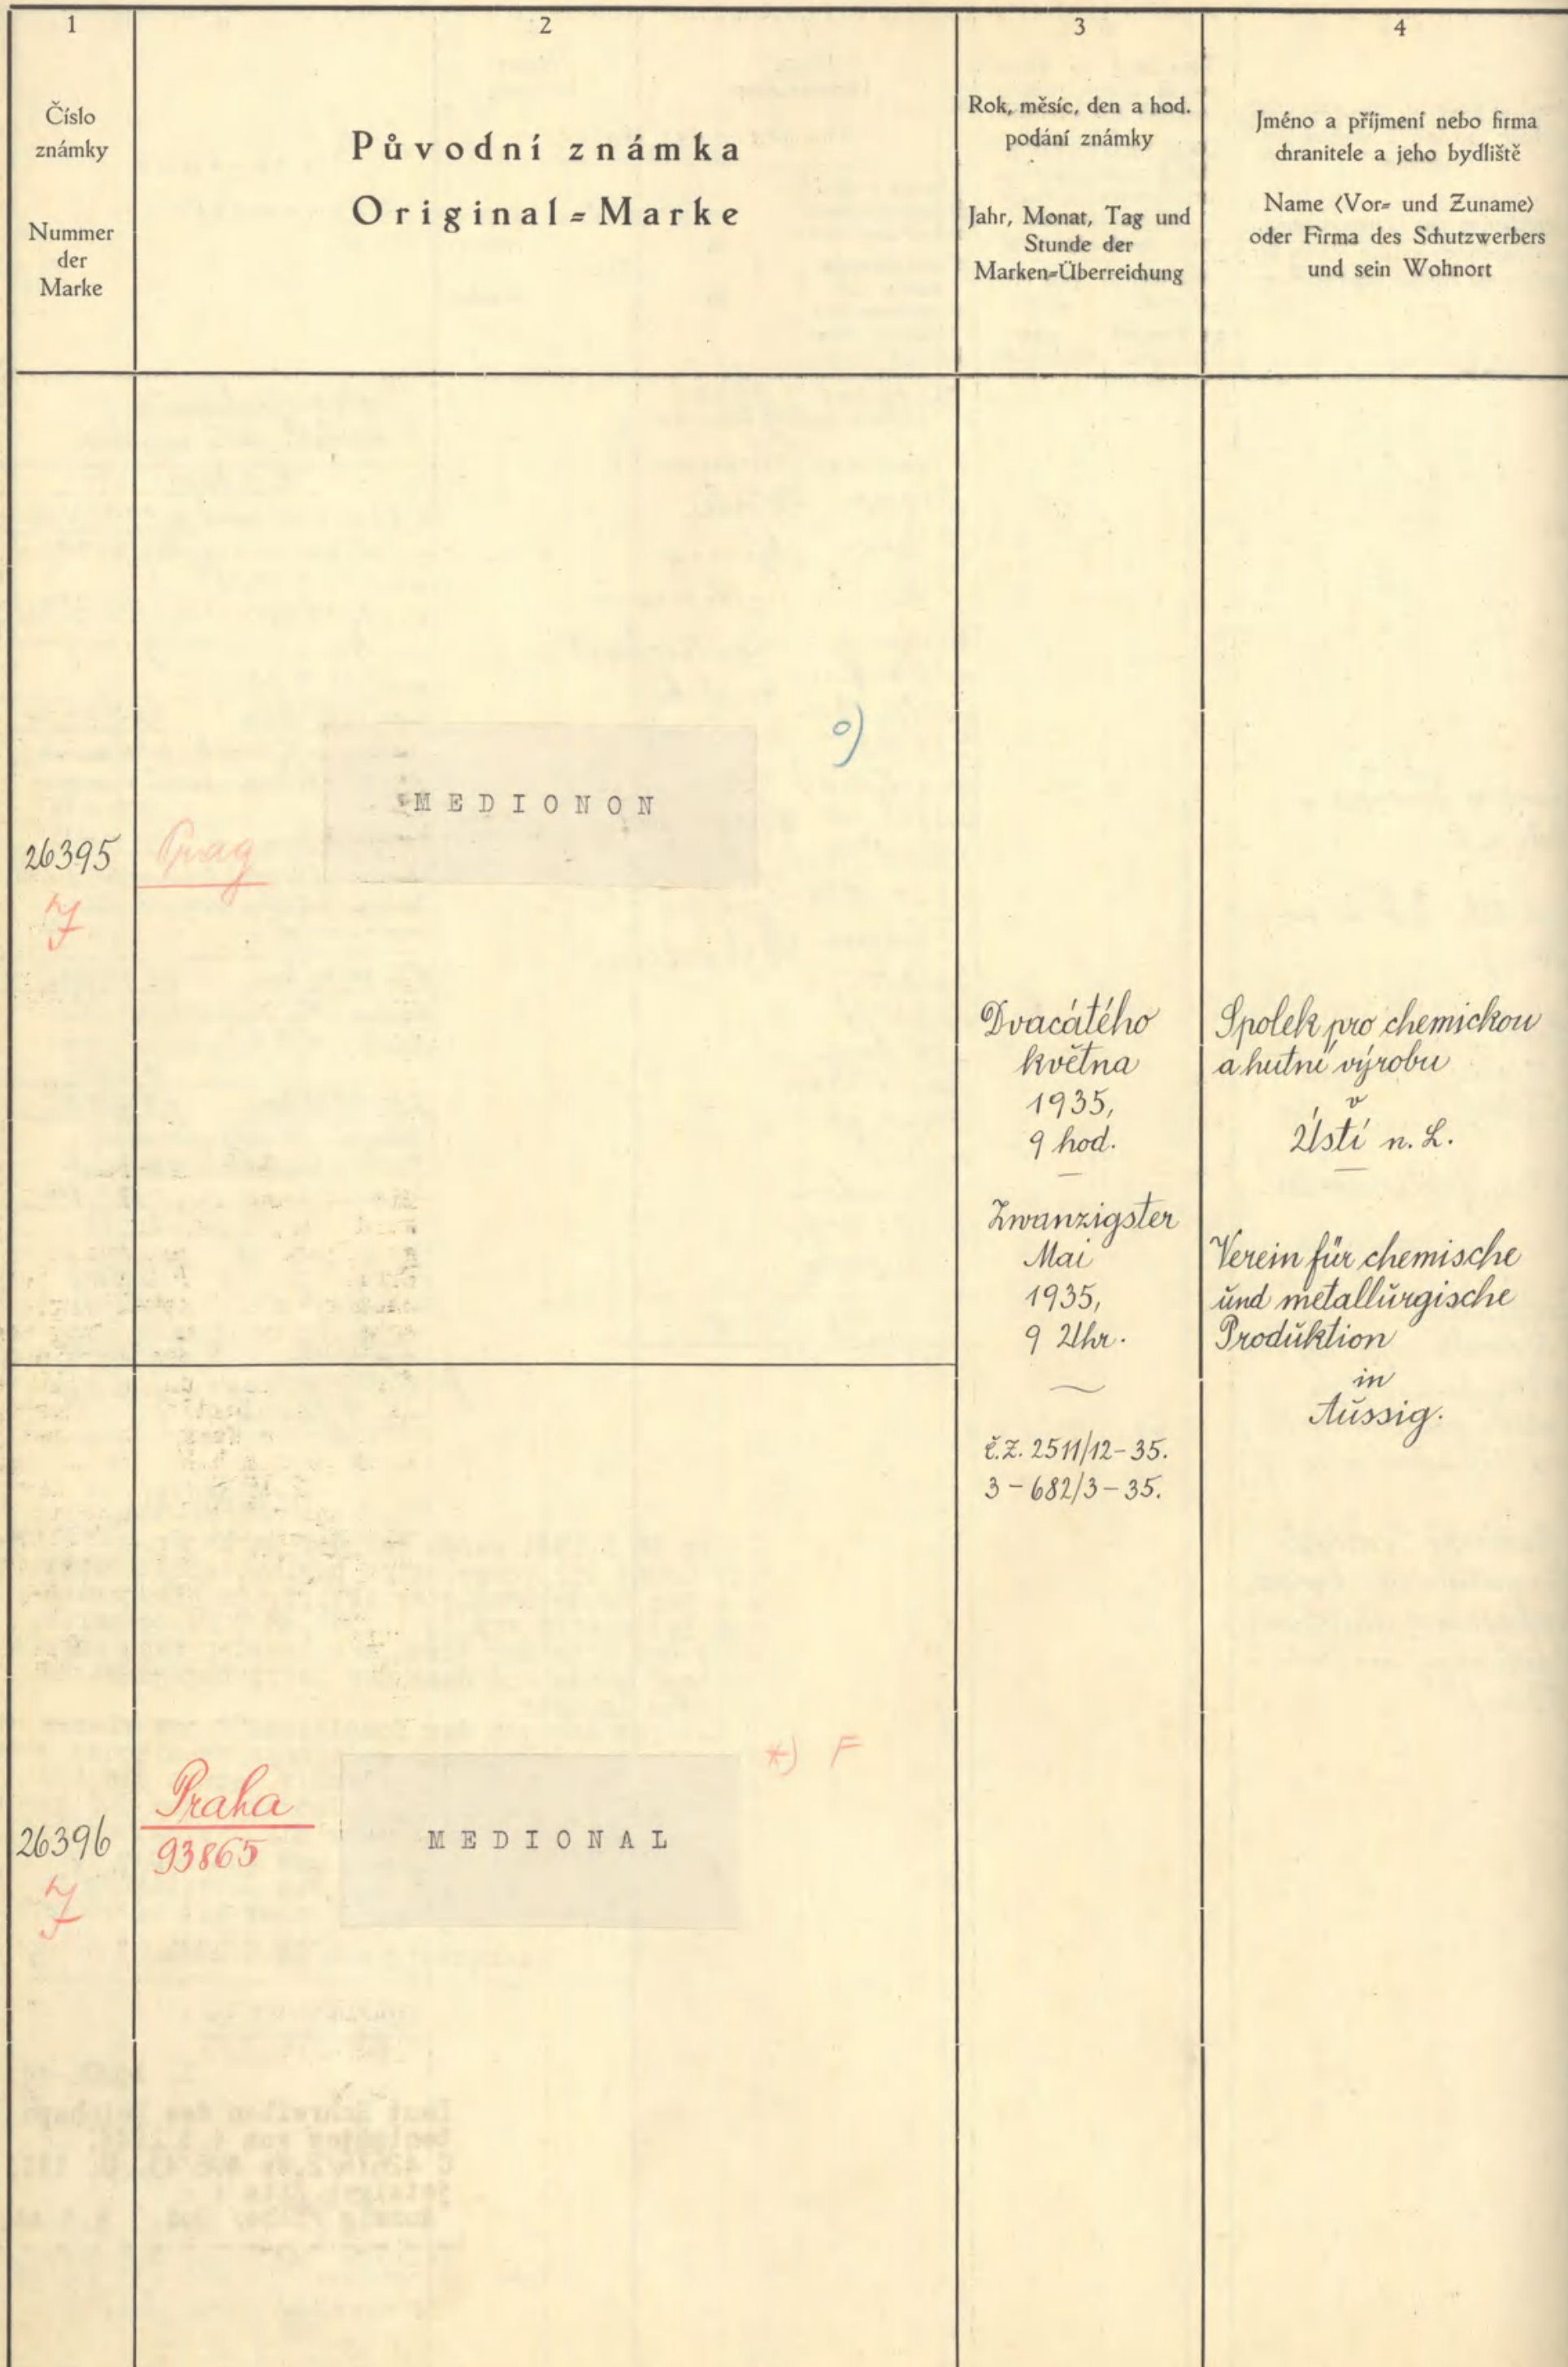 1
Číslo
známky
Nummer
der
Marke
2
Původní známka
Original=Marke
3
Rok, měsíc, den a hod.
podání známky
Jahr, Monat, Tag und
Stunde der
Marken=Überreichung
4
Jméno a příjmení nebo firma
chranitele a jeho bydliště
Name (Vor= und Zuname)
oder Firma des Schutzwerbers
und sein Wohnort
26395
Prag
MEDIONON
o)
Dvacátého
května
1935,
9 hod.
Zwanzigster
Mai
1935,
9 Uhr.
č.z. 2511/12-35.
3-682/3-35.
Spolek pro chemickou
a hutní výrobu
v
Ústí n. L.
Verein für chemische
und metallurgische
Produktion
in
Aussig.
26396
Praha
93865
MEDIONAL
*) F